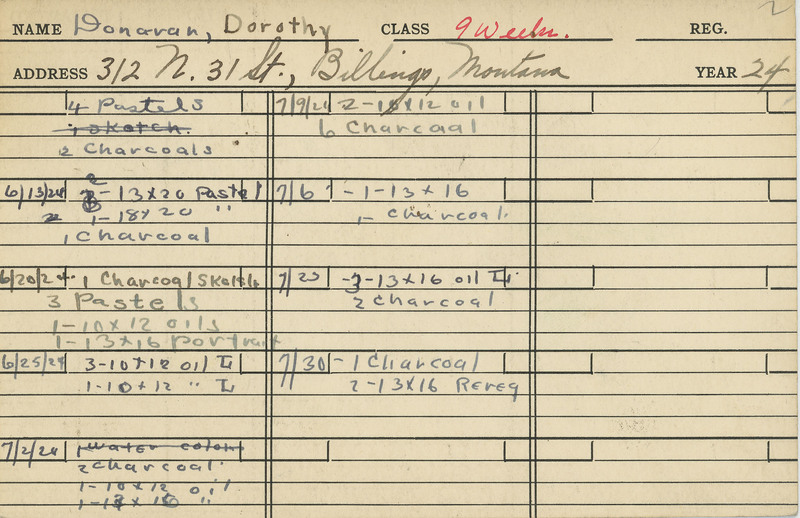 2
NAME Donavan, Dorothy CLASS 9 Weeks. REG.
ADDRESS 312 N. 31 St., Billings, Montana YEAR 24
4 Pastels
1 sketch.
2 Charcoals
6/13/24 2 - 13x20 Pastel
1 - 18x20 "
1 Charcoal
6/20/24 1 Charcoal Sketch
3 Pastels
1 - 10x12 oils
1 - 13x16 Portrait
6/25/24 3-10x12 oil II
1-10x12 " I
7/2/24 1 water color
2 charcoal
1-10x12 oil
1-13x16 "
7/9/24 2-10x12 oil
6 Charcoal
7/6 - 1-13x16
1- Charcoal.
7/23 -3-13x16 oil II
2 charcoal
7/30 - 1 Charcoal
2-13x16 Rereq